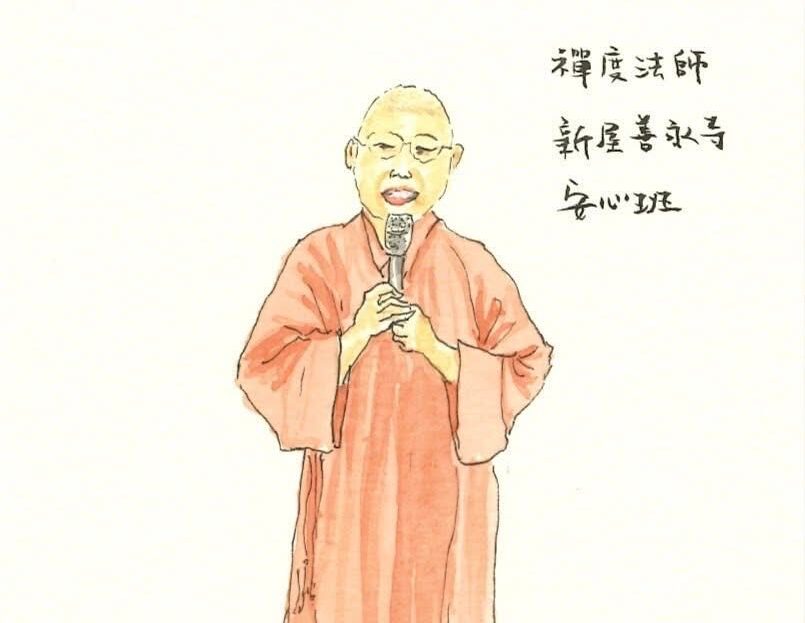 禪度法師
新屋善永寺
安心班